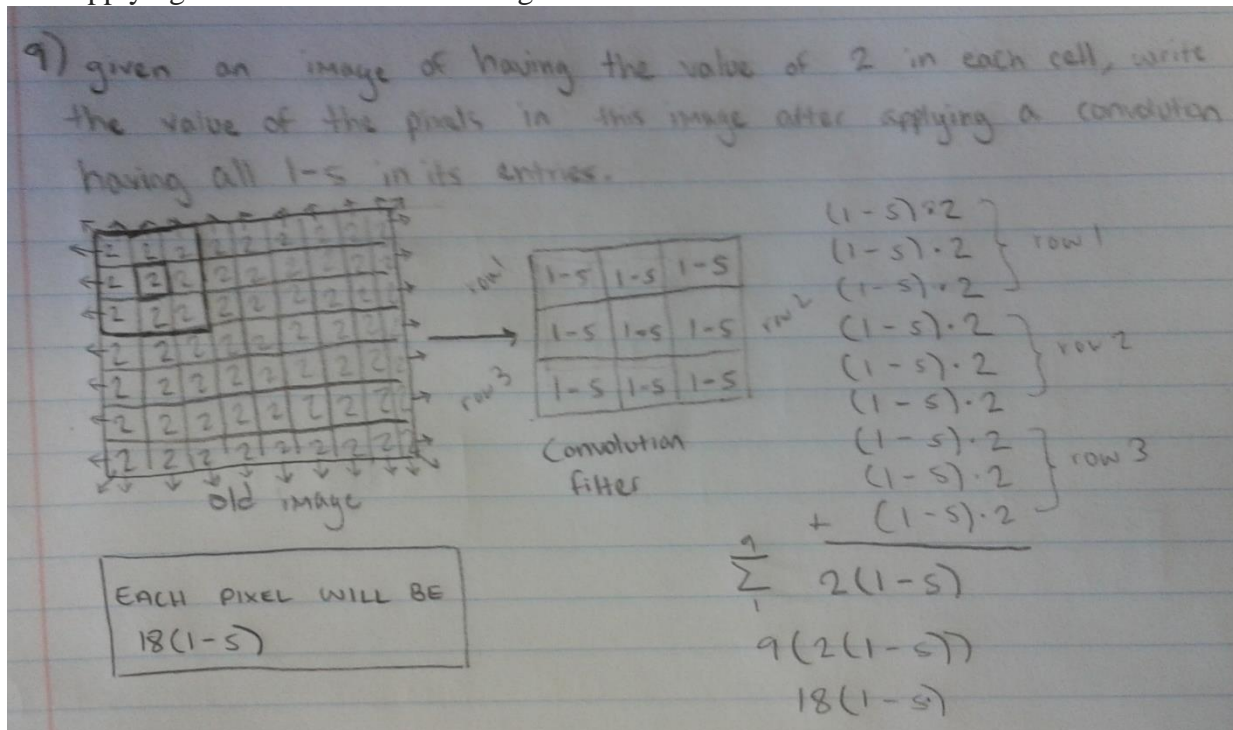 9) given an image of having the value of 2 in each cell, write
the value of the pixels in this image after applying a convolution
having all 1-s in its entries.
2 2 2 2 2 2 2 2 2
2 2 2 2 2 2 2 2 2
2 2 2 2 2 2 2 2 2
2 2 2 2 2 2 2 2 2
2 2 2 2 2 2 2 2 2
2 2 2 2 2 2 2 2 2
2 2 2 2 2 2 2 2 2
old image
row 1
1-s 1-s 1-s
row 2
1-s 1-s 1-s
row 3
1-s 1-s 1-s
Convolution
filter
(1-s)·2
(1-s)·2 row 1
(1-s)·2
(1-s)·2
(1-s)·2 row 2
(1-s)·2
(1-s)·2
(1-s)·2 row 3
+ (1-s)·2
9
Σ 2(1-s)
1
9(2(1-s))
18(1-s)
EACH PIXEL WILL BE
18(1-s)